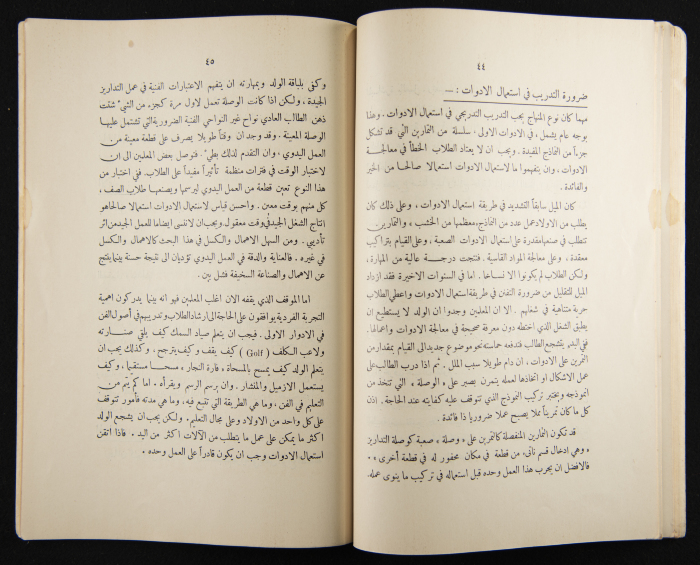 ٤٤
ضرورة التدريب في استعمال الادوات : —
مهما كان نوع المنهاج يجب التدريب التدريجي في استعمال الادوات . وهذا
بوجه عام يشمل ، في الادوات الاولى ، سلسلة من التمارين التي قد تشكل
جزءاً من النماذج المفيدة . ويجب ان لا يعتاد الطلاب الخطأ في معالجة
الادوات ، وان يتفهموا ما لاستعمال الادوات استعمالا صالحا من الخير
والفائدة .
كان الميل سابقاً التشديد في طريقة استعمال الادوات ، وعلى ذلك كان
يطلب من الاولاد عمل عدد من النماذج، معظمها من الخشب ، والتمارين
تتطلب في صنعها مقدرة على استعمال الادوات الصعبة ، وعلى القيام بتراكيب
معقدة ، وعلى معالجة المواد القاسية . فنتجت درجة عالية من المهارة ،
ولكن الطلاب لم يكونوا الا نساخا . اما في السنوات الاخيرة فقد ازداد
الميل للتقليل من ضرورة التفنن في طريقة استعمال الادوات واعطي الطلاب
حرية متناهية في شغلهم . الا ان المعلمين وجدوا ان الولد لا يستطيع ان
يطبق الشغل الذي اختطه دون معرفة صحيحة في معالجة الادوات واعمالها .
فى البدء يتشجع الطالب فتدفعه حماسته نحو موضوع جديد الى القيام بمقدار من
التمرين على الادوات ، ان دام طويلا سبب الملل . ثم اذا درب الطالب على
عمل الاشكال او اتخاذها لعمله يتمرن بصبر على « الوصلة » التي تتخذ من
انموذجه ويختبر تركيب النموذج الذي تتوقف عليه كفايته عند الحاجة . اذن
كل ما كان تمريناً مملا يصبح عملا ضروريا ذا فائدة .
قد تكون التمارين المنفصلة كالتمرين على « وصلة » صعبة كوصلة التداريز
« وهي ادخال قسم ناتىء من قطعة في مكان محفور له في قطعة أخرى » .
فالافضل ان يجرب هذا العمل وحده قبل استعماله في تركيب ما ينوى عمله .
٤٥
وكفى بلباقة الولد وبمهارته ان يتفهم الاعتبارات الفنية في عمل التداريز
الجيدة ، ولكن اذا كانت الوصلة تعمل لاول مرة كجزء من الشيء شتت
ذهن الطالب العادي نواح غير النواحي الفنية الضرورية التي تشتمل عليها
الوصلة المعينة . وقد وجد ان وقتاً طويلا يصرف على قطعة معينة من
العمل اليدوي ، وان التقدم لذلك بطيء . فتوصل بعض المعلمين الى ان
لاختبار الوقت في فترات منظمة تأثيراً مفيداً على الطلاب . ففي اختبار من
هذا النوع تعين قطعة من العمل اليدوي ليرسمها ويصنعها طلاب الصف ،
كل منهم بوقت معين . واحسن قياس لاستعمال الادوات استعمالا صالحا هو
انتاج الشغل الجيد في وقت معقول . ويجب ان لا ننسى ايضا ما للعمل الجيد من اثر
تأديبي . ومن السهل الاهمال والكسل في هذا البحث كالاهمال والكسل
في غيره . فالعناية والدقة في العمل اليدوي تؤديان الى نتيجة حسنة بينما ينتج
عن الاهمال والصناعة السخيفة فشل بين .
اما الموقف الذي يقفه الان اغلب المعلمين فهو انه بينما يدركون اهمية
التجربة الفردية يوافقون على الحاجة الى ارشاد الطلاب وتدريبهم في أصول الفن
في الادوار الاولى . فيجب ان يتعلم صياد السمك كيف يلقي صنارته
ولاعب الكلف ( Golf ) كيف يقف وكيف يترجح . وكذلك يجب ان
يتعلم الولد كيف يمسح بالمسحاة ، فارة النجار ، مسحا مستقيما ، وكيف
يستعمل الازميل والمنشار . وان يرسم الرسم ويقرأه . اما كم يتم من
التعليم في الفن ، وما هي الطريقة التي تتبع فيه ، وما هي مدته فأمور تتوقف
على كل واحد من الاولاد وعلى مجال التعليم . ولكن يجب ان يشجع الولد
اكثر ما يمكن على عمل ما يتطلب من الآلات اكثر من اليد . فاذا اتقن
استعمال الادوات وجب ان يكون قادراً على العمل وحده .